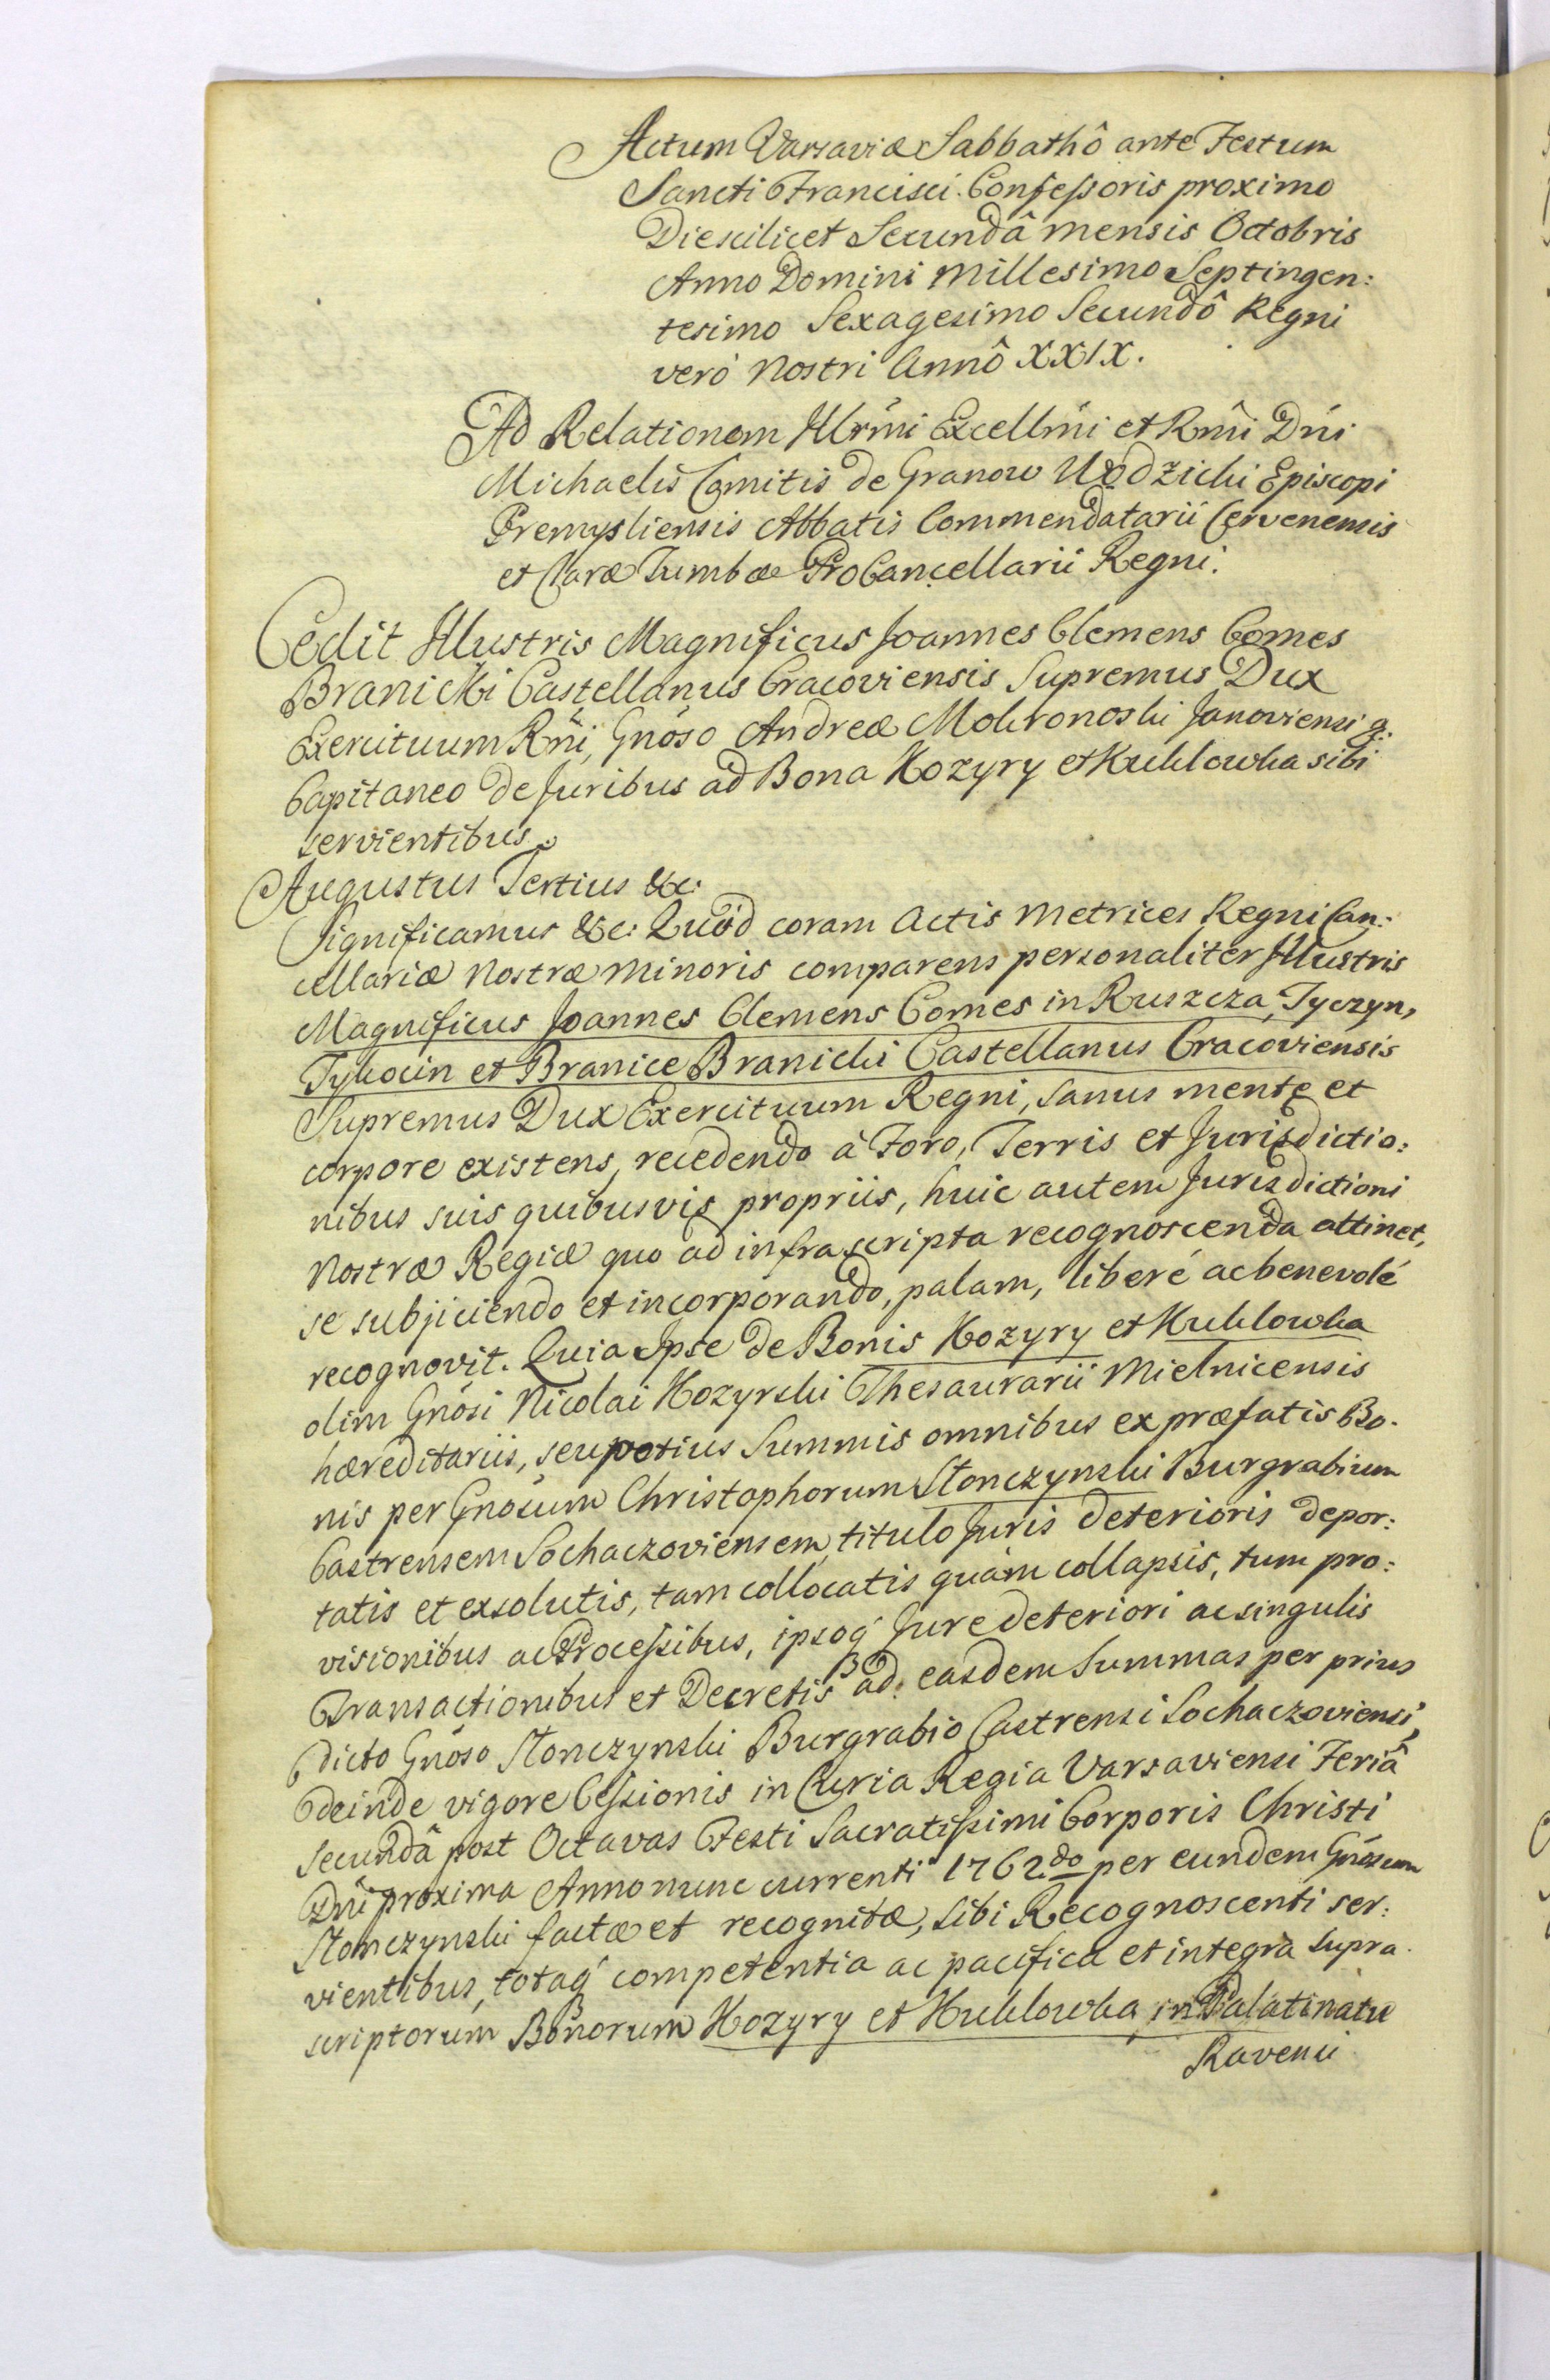 Actum Varsaviæ Sabbathô ante Festum
Sancti Francisci Confessoris proximo
Die scilicet Secundâ mensis Octobris
Anno Domini Millesimo Septingen:
tesimo Sexagesimo Secundô Regni
verò Nostri Annô XXIX.
Ad Relationem Illrmi Excellmi et Rmi Dni
Michaelis Comitis de Granow Wodzicki Episcopi
Premysliensis Abbatis Commendatarii Cervenensis
et Claræ Tumbæ ProCancellarii Regni.
Cedit Illustris Magnificus Joannes Clemens Comes
Branicki Castellanus Cracoviensis Supremus Dux
Exercituum Rni, Gnoso Andreæ Mokronoski Janoviensi
Capitaneo de Juribus ad Bona Kozyry et Kuklowka sibi
servientibus.
Augustus Tertius &c:
Significamus &c: Quòd coram Actis Metrices Regni Can:
cellariæ Nostræ Minoris comparens personaliter Illustris
Magnificus Joannes Clemens Comes in Ruszcza, Tyczyn,
Tykocin et Branice Branicki Castellanus Cracoviensis
Supremus Dux Exercituum Regni, sanus mente et
corpore existens, recedendo à Foro, Terris et Jurisdictio:
nibus suis quibusvis propriis, huic autem Jurisdictioni
Nostræ Regiæ quo ad infrascripta recognoscenda attinet,
se subjiciendo et incorporando, palam, liberé ac benevolé
recognovit. Quia Ipse de Bonis Kozyry et Kuklowka
olim Gnosi Nicolai Kozyrski Thesaurarii Mielnicensis
hæreditariis, seu potius Summis omnibus ex præfatis Bo-
nis per Gnosum Christophorum Słonczynski Burgrabium
Castrensem Sochaczoviensem, titulo Juris deterioris depor:
tatis et exsolutis, tam collocatis quàm collapsis, tum pro:
visionibus ac Processibus, ipsoq́ Jure deteriori ac singulis
Transactionibus et Decretis ad easdem Summas per prius
dicto Gnoso Słonczynski Burgrabio Castrensi Sochaczoviensi,
deinde vigore Cessionis in Curia Regia Varsaviensi Feriâ
secundâ post Octavas Festi Sacratissimi Corporis Christi
Dni proxima Anno nunc currenti 1762do per eundem Gnosum
Słonczynski factæ et recognitæ, sibi Recognoscenti ser:
vientibus, totaq́ competentia ac pacifica et integra supra
scriptorum Bonorum Kozyry et Kuklowka in Palatinatu
Ravensi